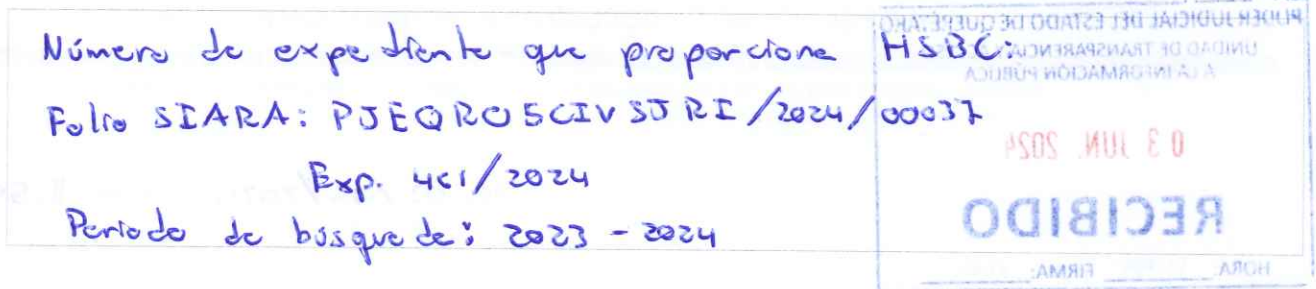 Número de expediente que proporciona HSBC:
Folio SIARA: PJEQRO5CIVSJRI/2024/00037
Exp. 461/2024
Periodo de búsqueda: 2023 - 2024
PODER JUDICIAL DEL ESTADO DE QUERÉTARO
UNIDAD DE TRANSPARENCIA
A LA INFORMACIÓN PÚBLICA
03 JUN. 2024
RECIBIDO
HORA: FIRMA: